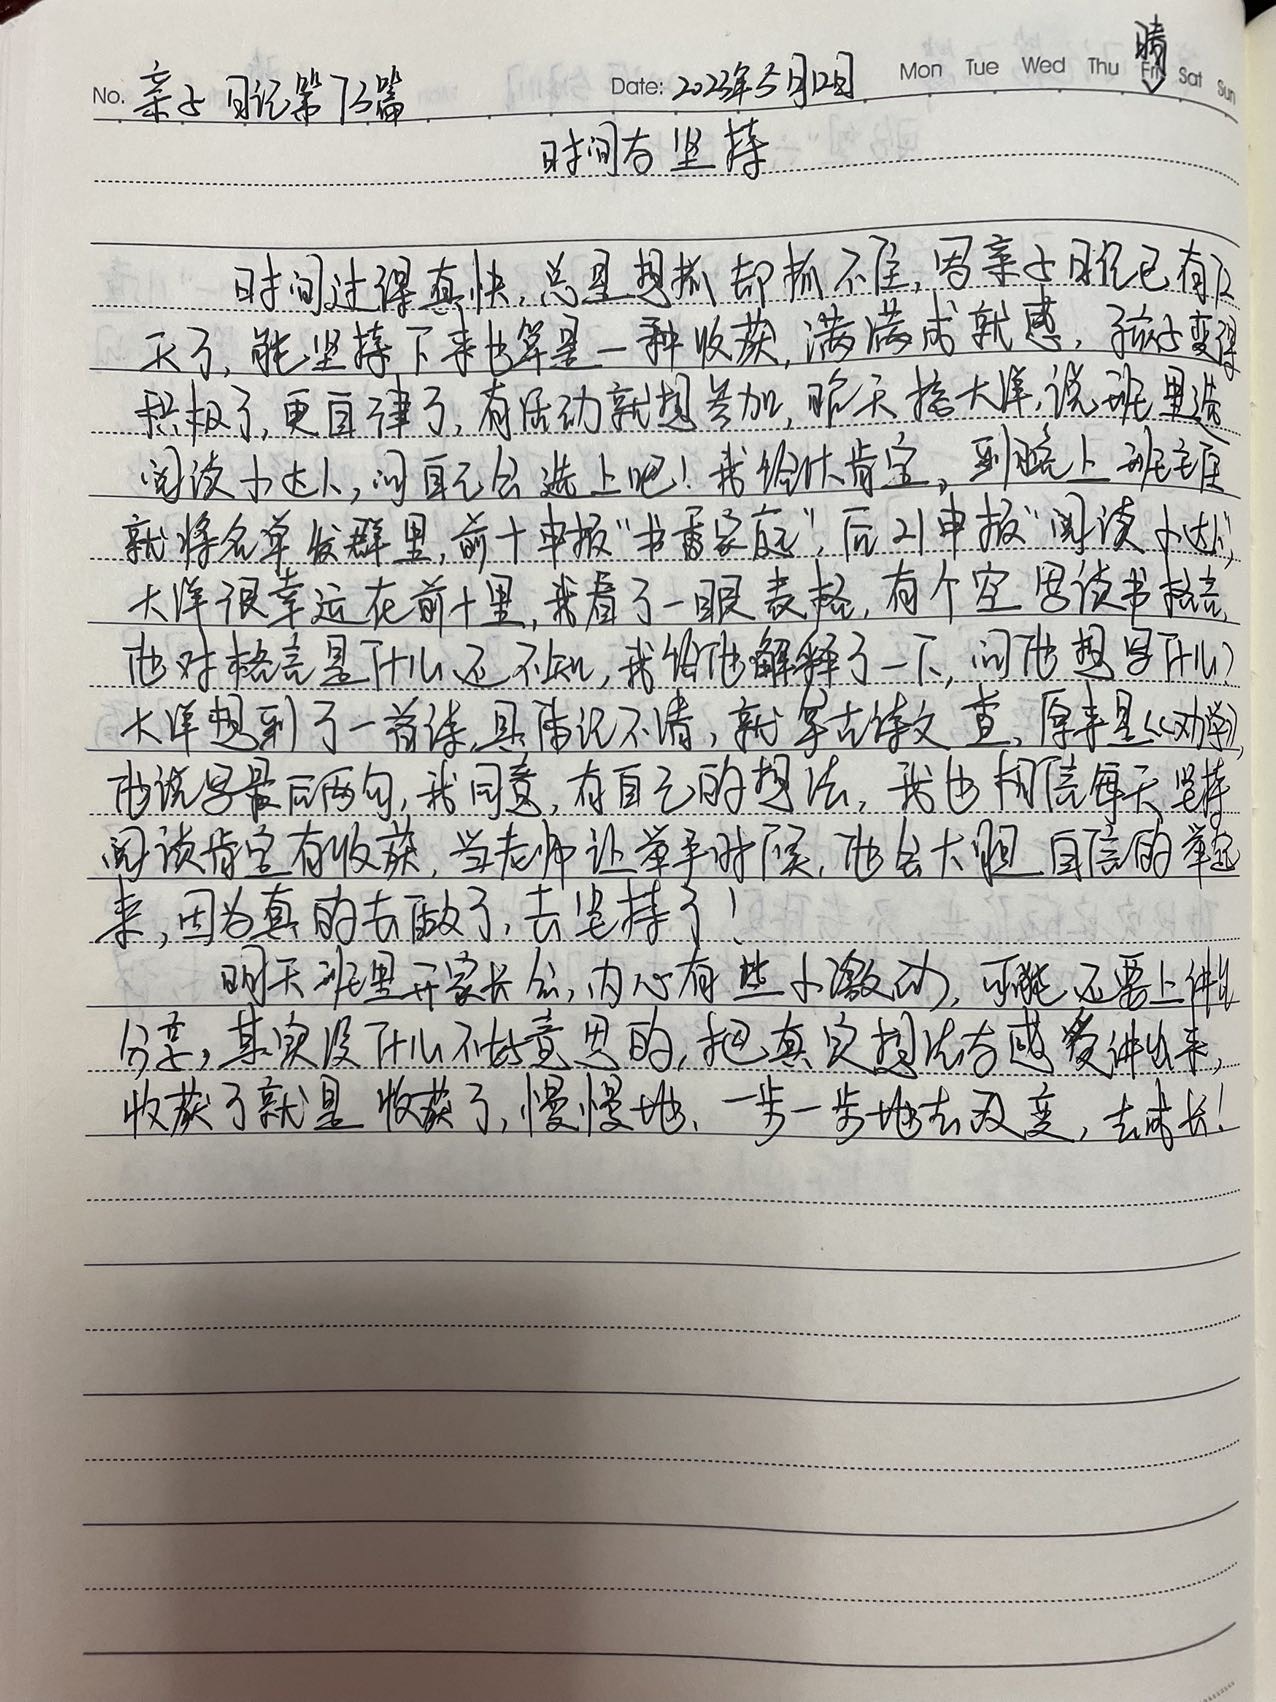 晴
No. 亲子日记第73篇 Date: 2023年5月12日 Mon Tue Wed Thu Fri Sat Sun
时间与坚持
时间过得真快，总是想抓却抓不住，写亲子日记已有72
天了，能坚持下来也算是一种收获，满满成就感，孩子变得
积极了，更自律了，有活动就想参加，昨天接大洋，说班里选
阅读小达人，问自己会选上吧！我给他肯定，到晚上班主任
就将名单发群里，前十申报“书香家庭”，后21申报“阅读小达人”，
大洋很幸运在前十里，我看了一眼表格，有个空写读书格言，
他对格言是什么还不知，我给他解释了一下，问他想写什么？
大洋想到了一首诗，具体记不清，就拿古诗文查，原来是《劝学》，
他说写最后两句，我同意，有自己的想法，我也相信每天坚持
阅读肯定有收获，当老师让举手时候，他会大胆自信的举起
来，因为真的去做了，去坚持了！
明天班里开家长会，内心有些小激动，可能还要上讲台
分享，其实没什么不好意思的，把真实想法与感受讲出来，
收获了就是收获了，慢慢地，一步一步地去改变，去成长！